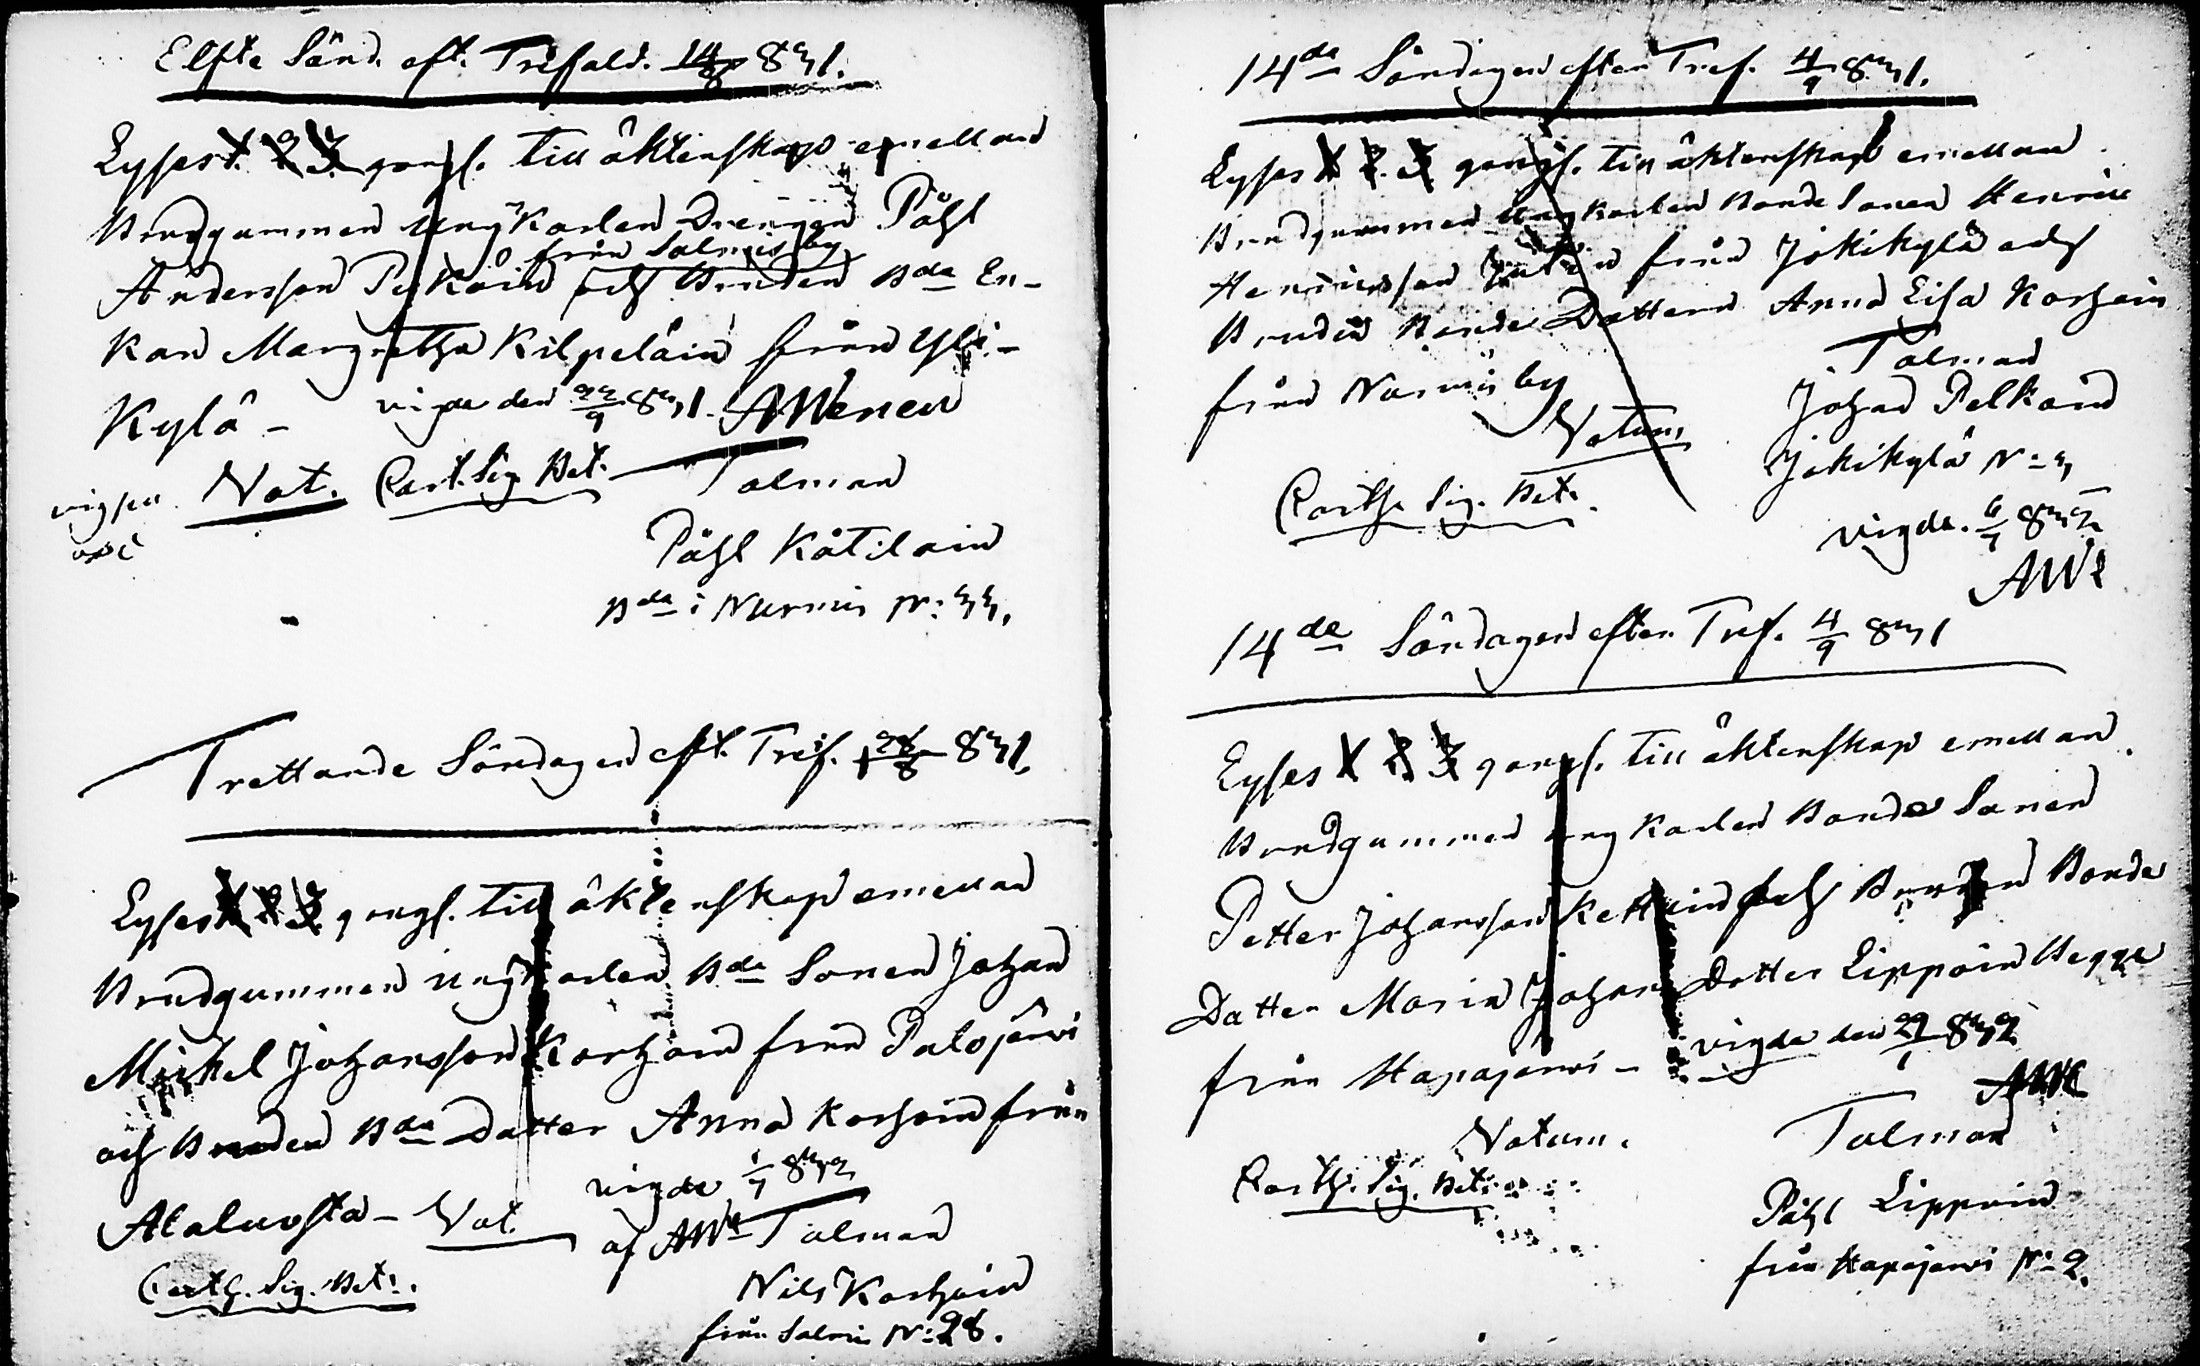 Elfte Sönd. eft. Trefald. 14/8 831.
Lyses 1. 2 3. gongs. till äktenskap emellan
Brudgummen ungKarlen Drengen Påhl
från Salmis by
Andersson PyKäin och Bruden Bde En-
kan Margretha Kilpeläin från Yli-
Kylä - vigde den 22/9 831. AWenen
vigsen Not. Cart. Sig. Bet. Talman
Påhl Kåtilain
Bde i Nurmis N: 33.
Trettande Söndagen eft. Tref. 28/8 831.
Lyses 1 2 3 gongs. till äktenskap emellan
Brudgummen ungKarlen Bde Sonen Johan
Michel Johansson Korhoin från Palojärvi
och Bruden Bde Dotter Anna Korhoin från
Alaluosta - Not. vigde 1/1 832
af AWn Talman
Carth. Sig. Bet.
Nils Korhoin
från Salmi N: 28.
14de Söndagen efter Tref. 4/9 831.
Lyses 1 2. 3 gongs. till äktenskap emellan
Brudgummen Ungkarlen Bonde Sonen Henric
Henricsson från Jokikylä och
Bruden Bonde Dottern Anna Lisa Korhoin
från Nurmis by Talman
Notum, Johan Pelkoin
Carth. Sig. Bet. Jokikylä N: 3
vigde. 6/1 832
AWn
14de Söndagen efter Tref. 4/9 831
Lyses 1 2 3 gongs. till äktenskap emellan
Brudgummen ung Karlen Bonde Sonen
Petter Johansson Kettuin och Bruden Bonde
Dotter Maria Johans Dotter Lippoin Begge
från Hapajärvi - vigde den 29/1 832
AWn
Notum. Talman
Carth. Sig. Bet.
Påhl Lippoin
från Hapajärvi N: 2.